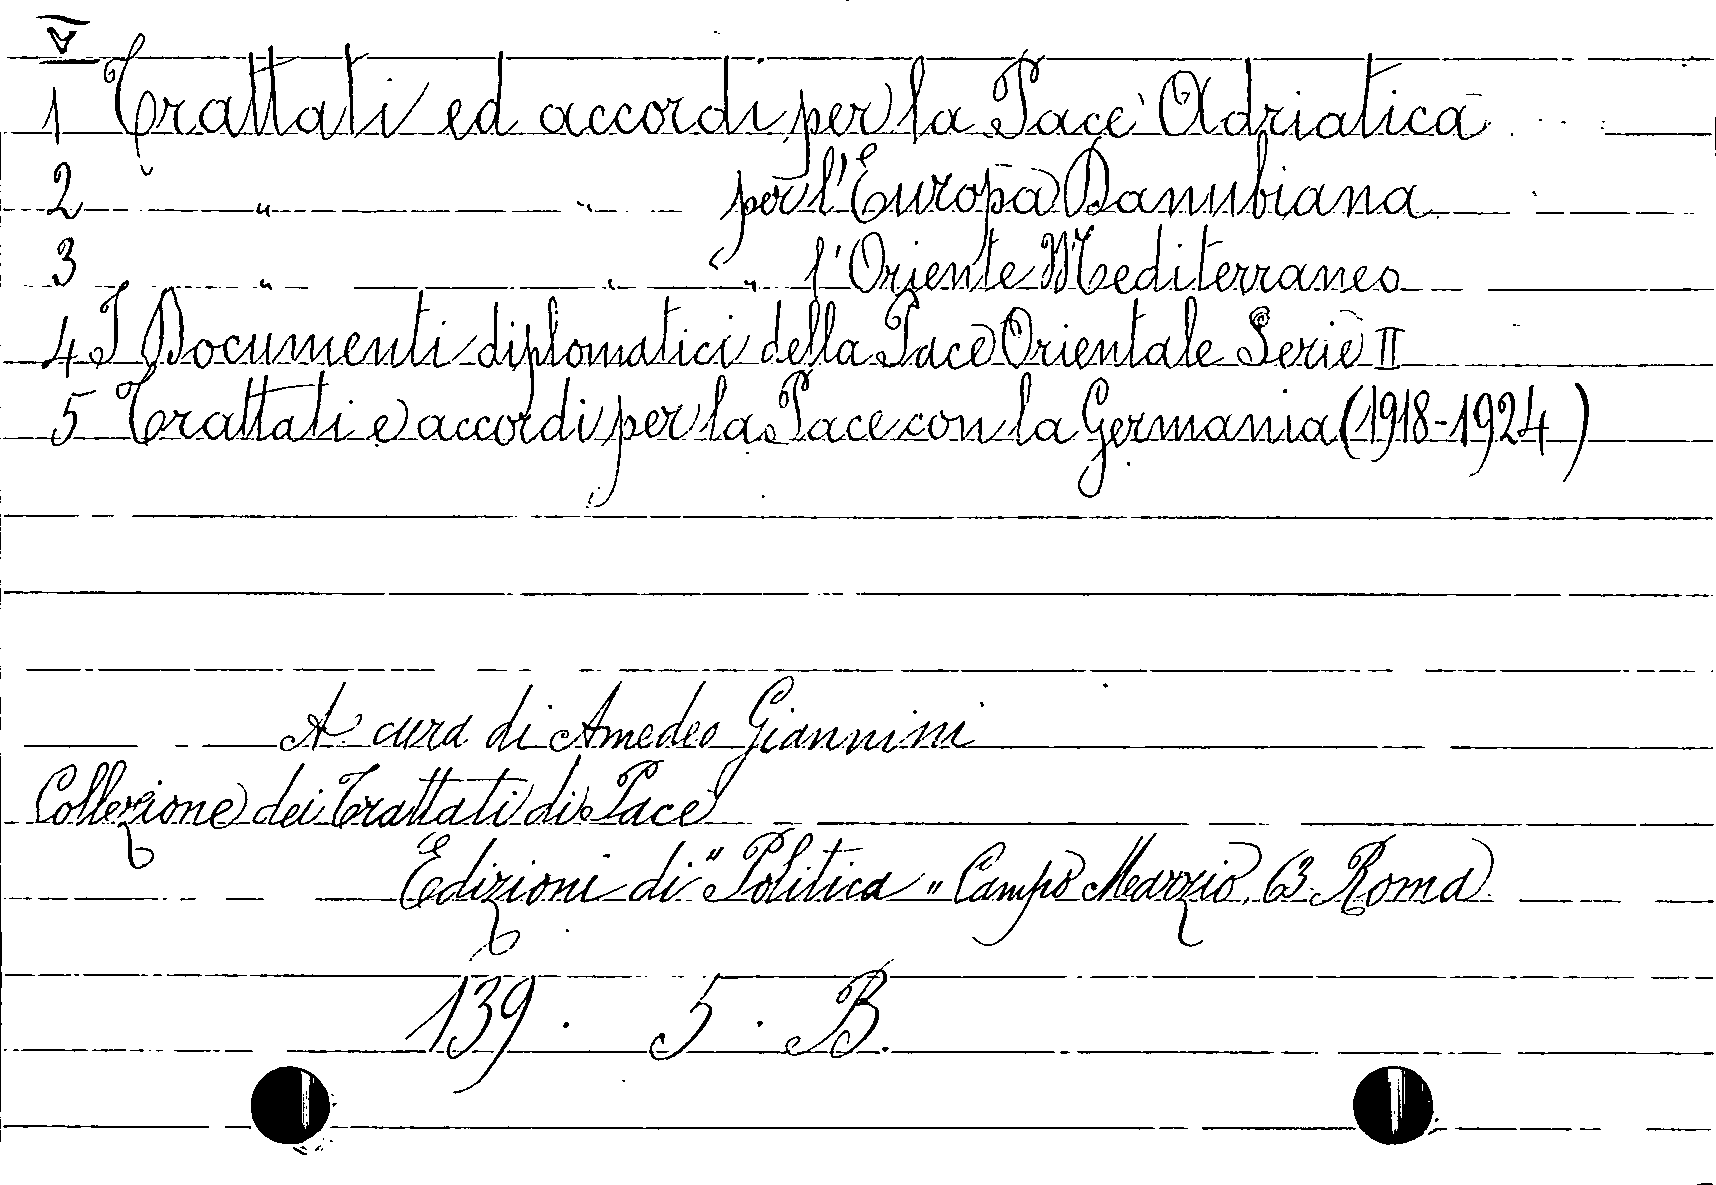 V
1 Trattati ed accordi per la Pace Adriatica
2 " " " per l'Europa Danubiana
3 " " " l'Oriente Mediterraneo
4 I Documenti diplomatici della Pace Orientale Serie II
5 Trattati e accordi per la Pace con la Germania (1918-1924)
A cura di Amedeo Giannini
Collezione dei Trattati di Pace
Edizioni di "Politica" Campo Marzio, 63. Roma
139. 5. B.